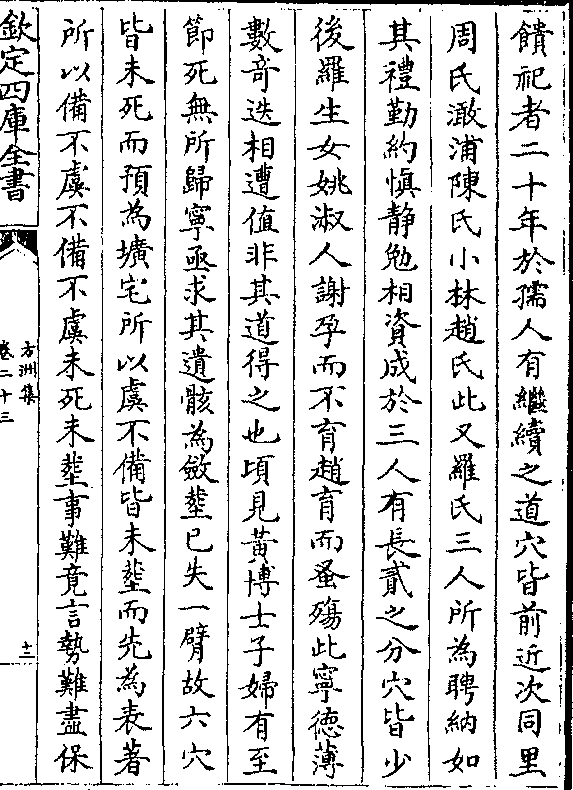 饋祀者二十年於孺人有繼續之道穴皆前近次同里
周氏澉浦陳氏小林趙氏此又羅氏三人所為聘納如
其禮勤約慎静勉相資成於三人有長貳之分穴皆少
後羅生女姚淑人謝孕而不育趙育而蚤殤此寧德薄
數奇迭相遭值非其道得之也頃見黄博士子婦有至
節死無所歸寧亟求其遺骸為斂塟已失一臂故六穴
皆未死而預為壙宅所以虞不備皆未塟而先為表著
所以備不虞不備不虞未死未塟事難竟言勢難盡保
欽定四庫全書
方洲集
卷二十三
十二